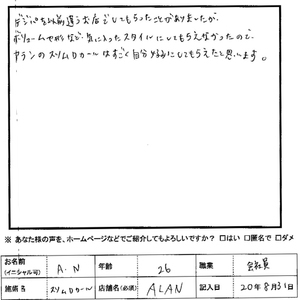 デジパを以前違うお店でしてもらったことがありましたが、
ボリュームや形など、気に入ったスタイルにしてもらえなかったので、
今回のスリムDカールはすごく自分好みにしてもらえたと思います。
※ あなた様の声を、ホームページなどでご紹介してもよろしいですか？ □はい □匿名で □ダメ
お名前 (イニシャル可) A.N 年齢 26 職業 会社員
施術名 スリムDカール 店舗名(必須) ALAN 記入日 20年8月31日